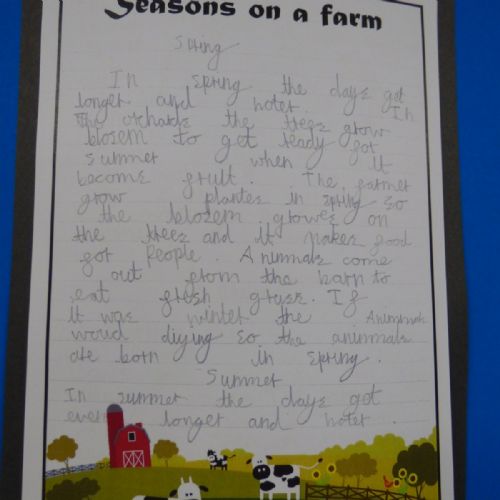 Seasons on a farm
Spring
In spring the days get
longer and hoter. In
the orchards the trees grow
blosem to get ready for
summer when it
become fruit. The farmer
grow plantes in spring so
the blosem growes on
the trees and it makes food
for people. Animals come
out from the barn to
eat fresh grass. If
it was winter the Animmals
woud diying so the animmals
are born in spring.
Summer
In summer the days get
even longer and hoter.